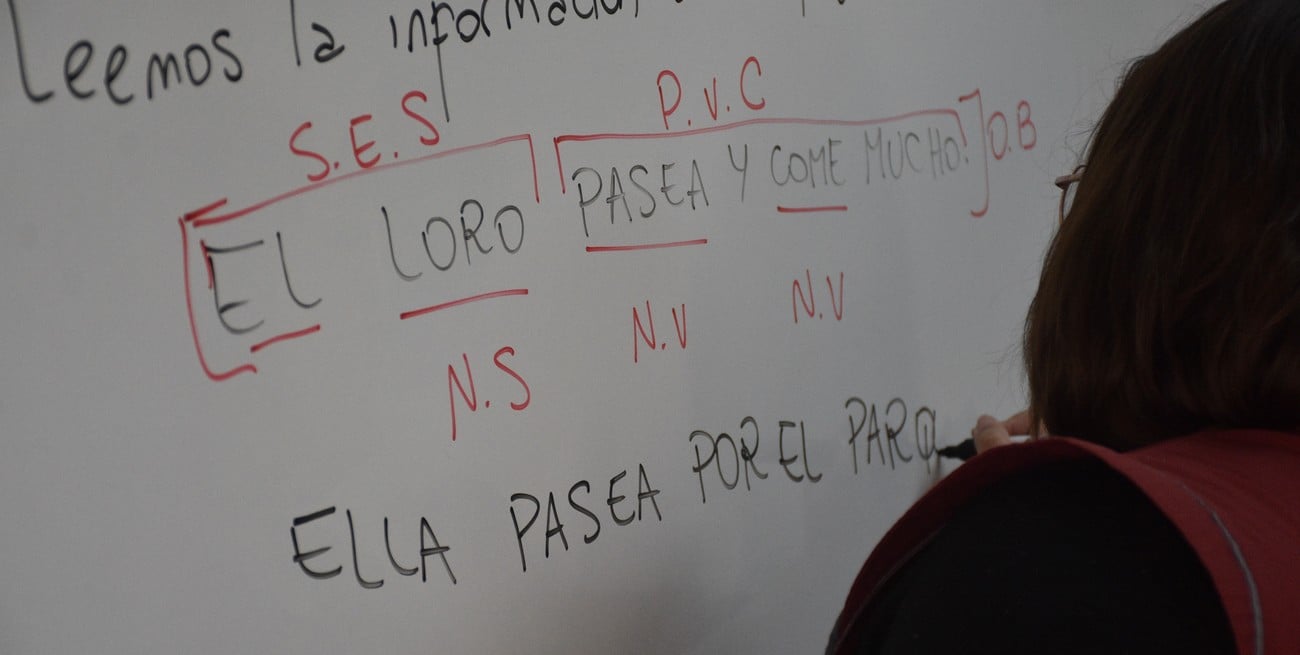 Leemos la información
S.E.S
P.V.C
EL LORO PASEA Y COME MUCHO.] O.B
N.S N.V N.V
ELLA PASEA POR EL PARQ